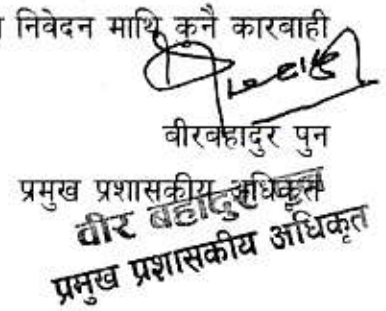 निवेदन माथि कुनै कारबाही
वीरबहादुर पुन
प्रमुख प्रशासकीय अधिकृत
वीर बहादुर पुन
प्रमुख प्रशासकीय अधिकृत